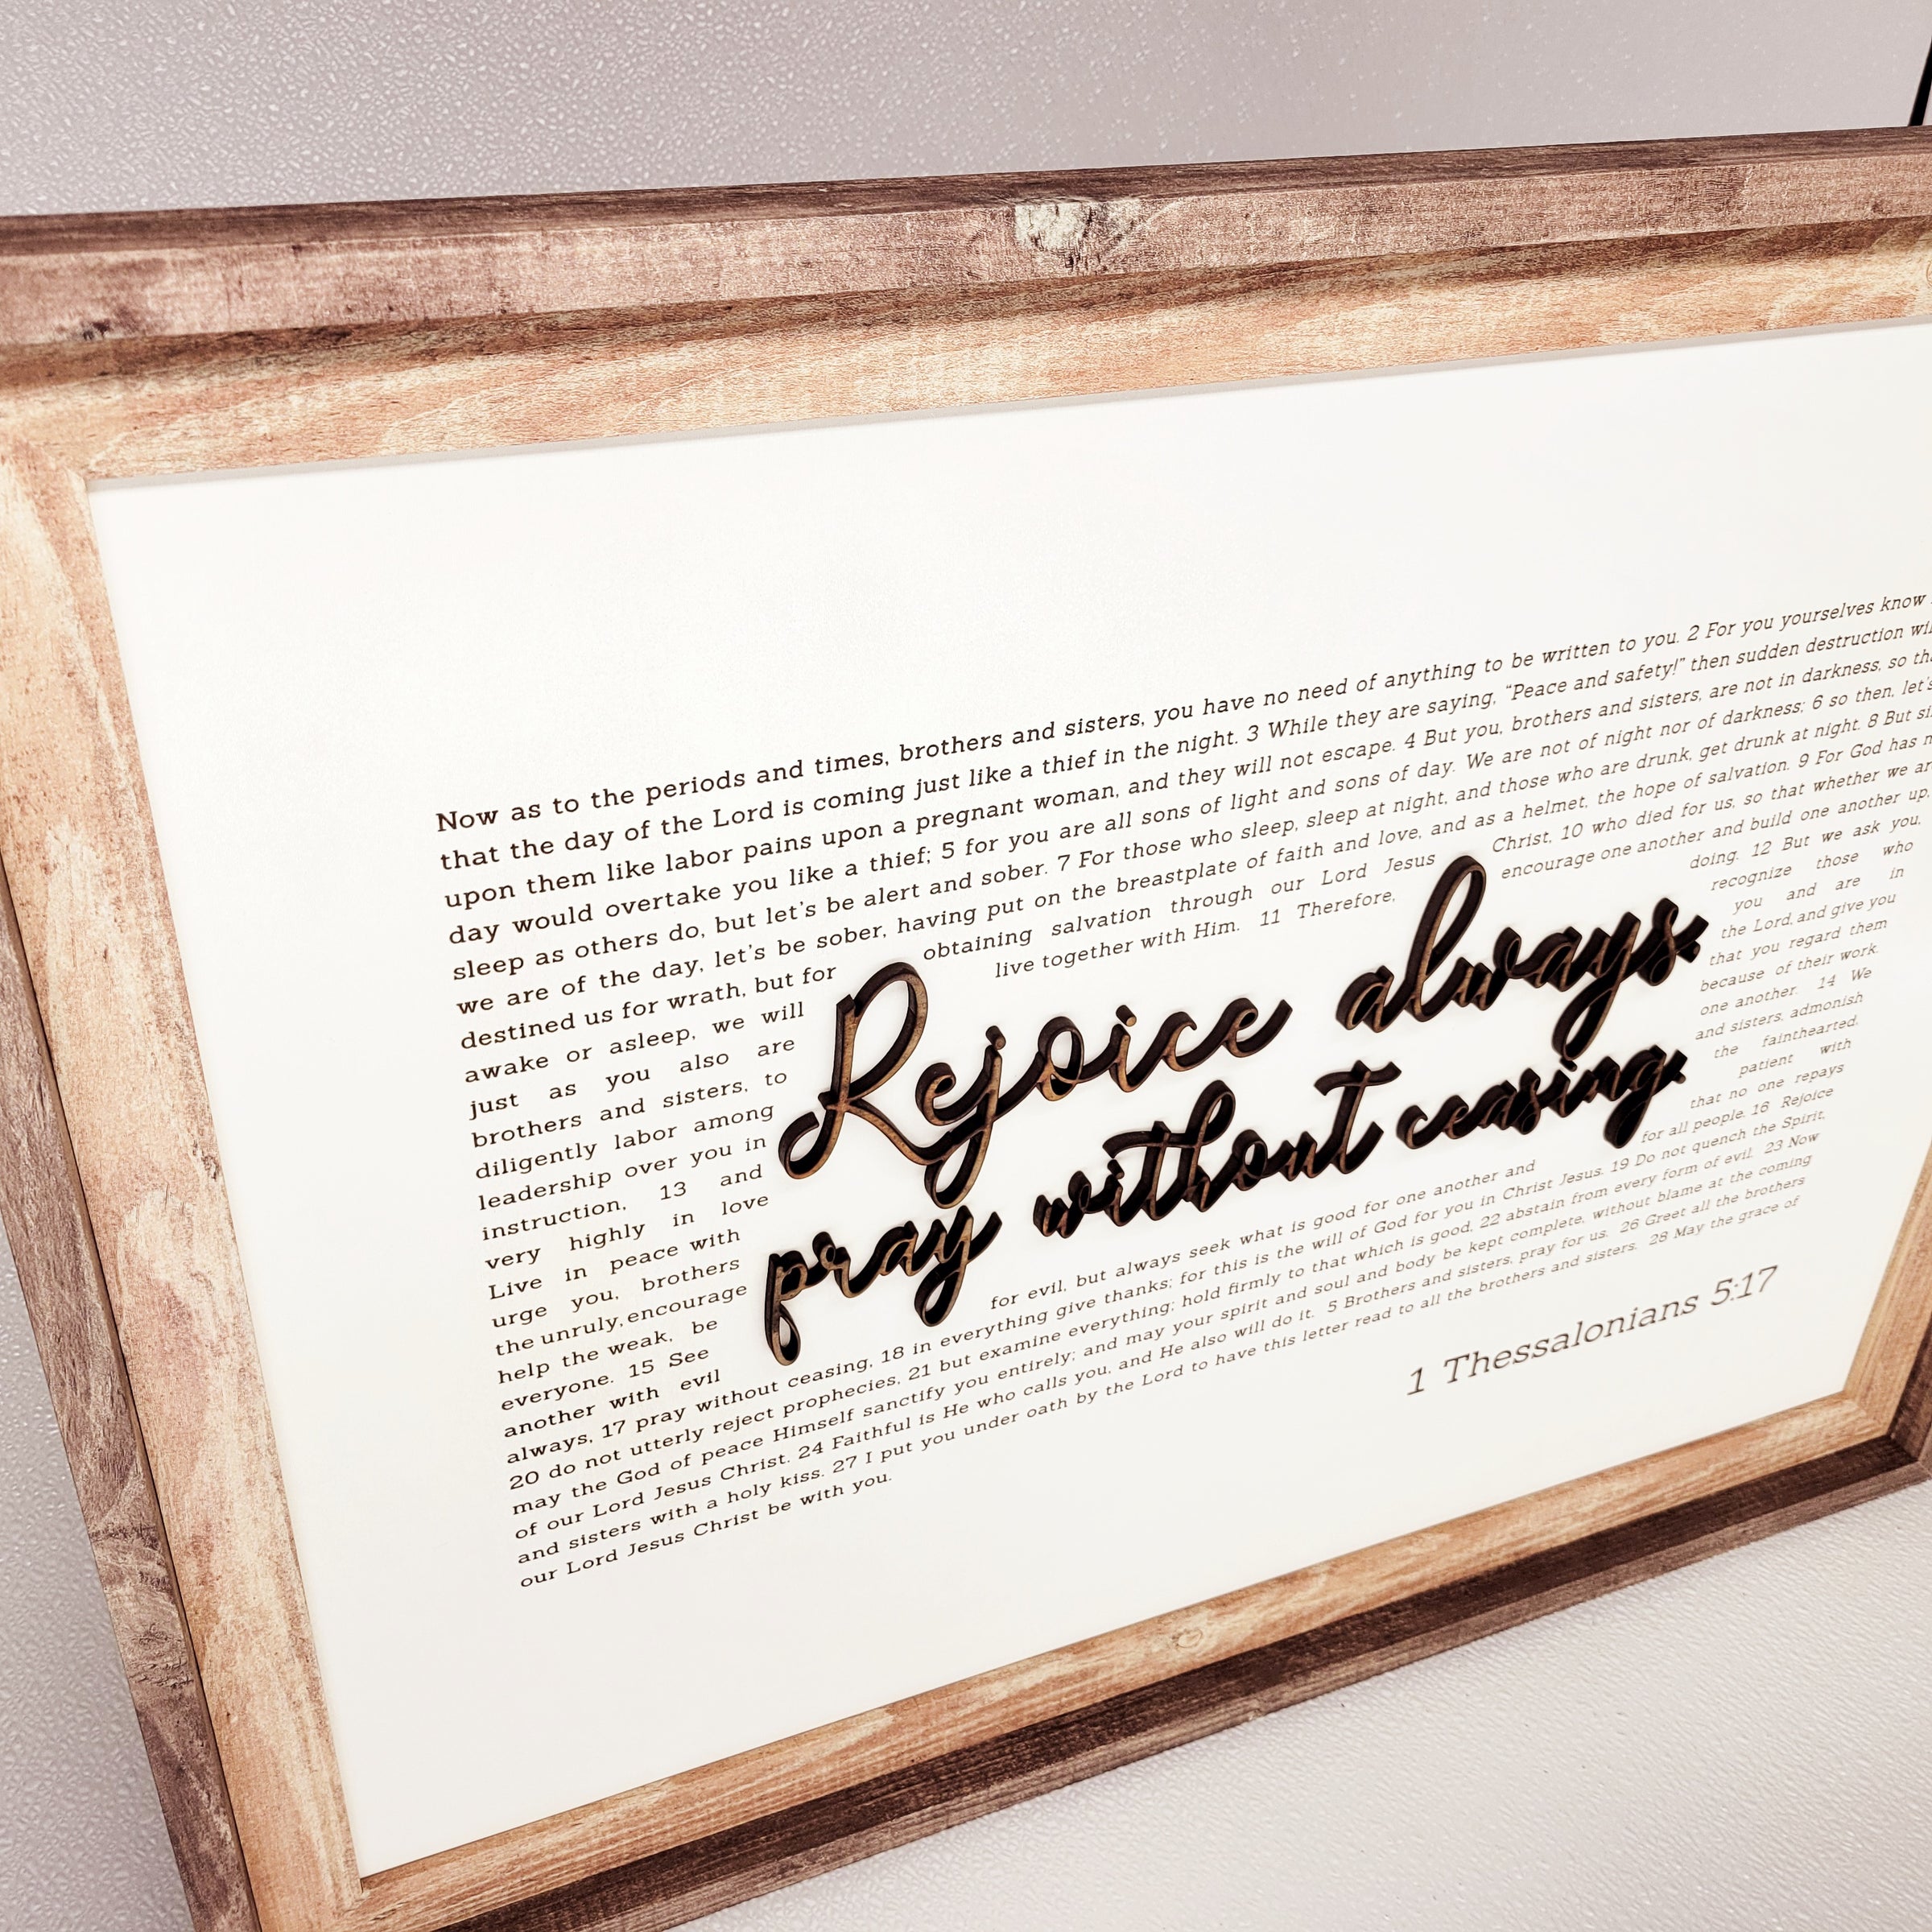 Now as to the periods and times, brothers and sisters, you have no need of anything to be written to you. 2 For you yourselves know
that the day of the Lord is coming just like a thief in the night. 3 While they are saying, “Peace and safety!” then sudden destruction
upon them like labor pains upon a pregnant woman, and they will not escape. 4 But you, brothers and sisters, are not in darkness, so
day would overtake you like a thief; 5 for you are all sons of light and sons of day. We are not of night nor of darkness; 6 so then, let's
sleep as others do, but let's be alert and sober. 7 For those who sleep, sleep at night, and those who are drunk, get drunk at night. 8 But
we are of the day, let's be sober, having put on the breastplate of faith and love, and as a helmet, the hope of salvation. 9 For God has
destined us for wrath, but for obtaining salvation through our Lord Jesus Christ, 10 who died for us, so that whether we
awake or asleep, we will live together with Him. 11 Therefore, encourage one another and build one another up,
just as you also are doing. 12 But we ask you,
brothers and sisters, to recognize those who
diligently labor among you and are in
leadership over you in the Lord, and give you
instruction, 13 and that you regard them
very highly in love because of their work.
Live in peace with one another. 14 We
urge you, brothers and sisters, admonish
the unruly, encourage the fainthearted,
help the weak, be patient with
everyone. 15 See that no one repays
another with evil for evil, but always seek what is good for one another and for all people. 16 Rejoice
always, 17 pray without ceasing, 18 in everything give thanks; for this is the will of God for you in Christ Jesus. 19 Do not quench the Spirit,
20 do not utterly reject prophecies, 21 but examine everything; hold firmly to that which is good, 22 abstain from every form of evil. 23 Now
may the God of peace Himself sanctify you entirely; and may your spirit and soul and body be kept complete, without blame at the coming
of our Lord Jesus Christ. 24 Faithful is He who calls you, and He also will do it. 5 Brothers and sisters, pray for us. 26 Greet all the brothers
and sisters with a holy kiss. 27 I put you under oath by the Lord to have this letter read to all the brothers and sisters. 28 May the grace of
our Lord Jesus Christ be with you.
Rejoice always,
pray without ceasing.
1 Thessalonians 5:17